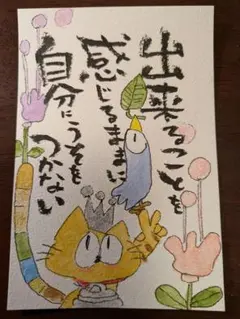 出来ることを
感じるままに
自分にうそを
つかない